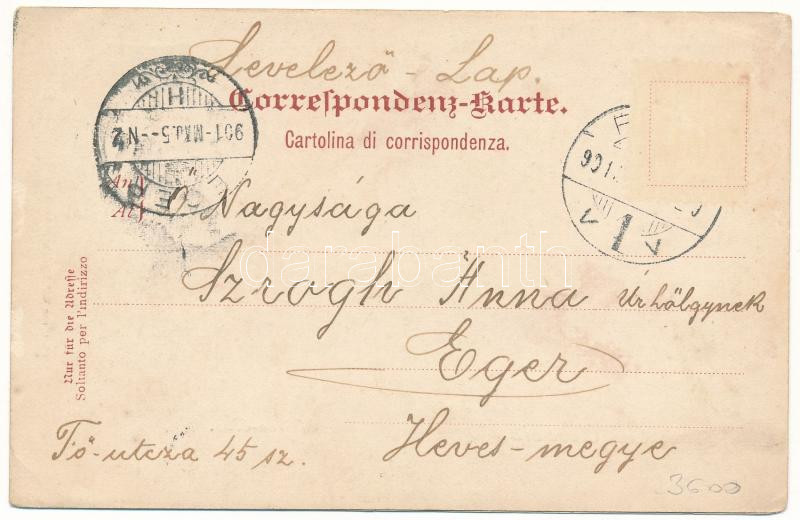 Levelező-Lap.
Correspondenz-Karte.
Cartolina di corrispondenza.
901-MÁJ.5--N2
EGER
An
Al
Ő Nagysága
Szrogh Anna Úrhölgynek
Eger
Fő-utcza 45 sz.
Heves-megye
Nur für die Adresse
Soltanto per l'indirizzo
darabanth
3600